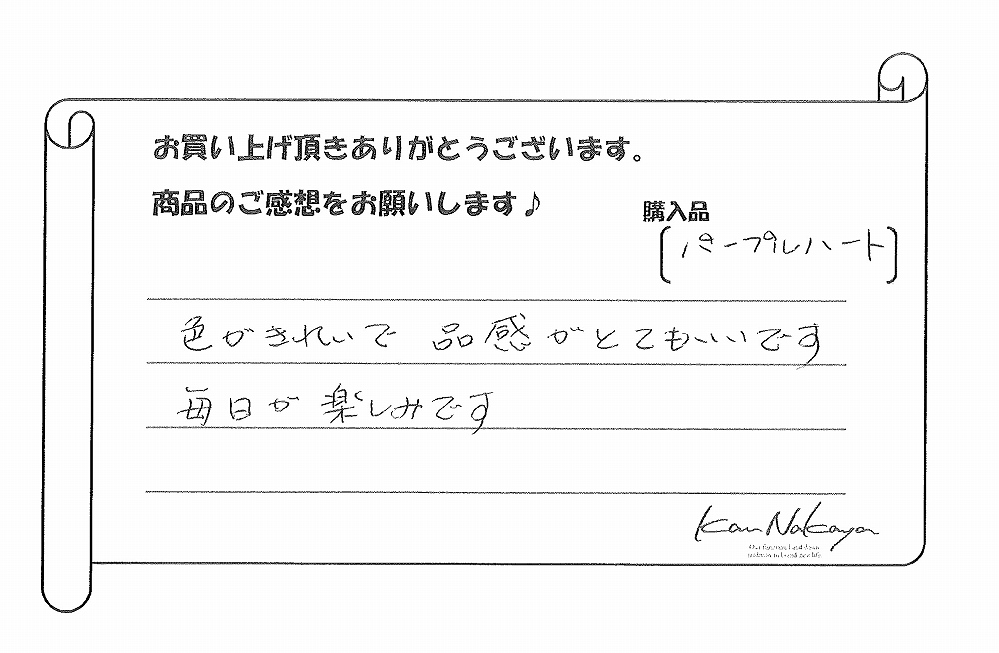 お買い上げ頂きありがとうございます。
商品のご感想をお願いします♪
購入品
[パープルハート]
色がきれいで 品感がとてもいいです
毎日が楽しみです
Kan Nakaya